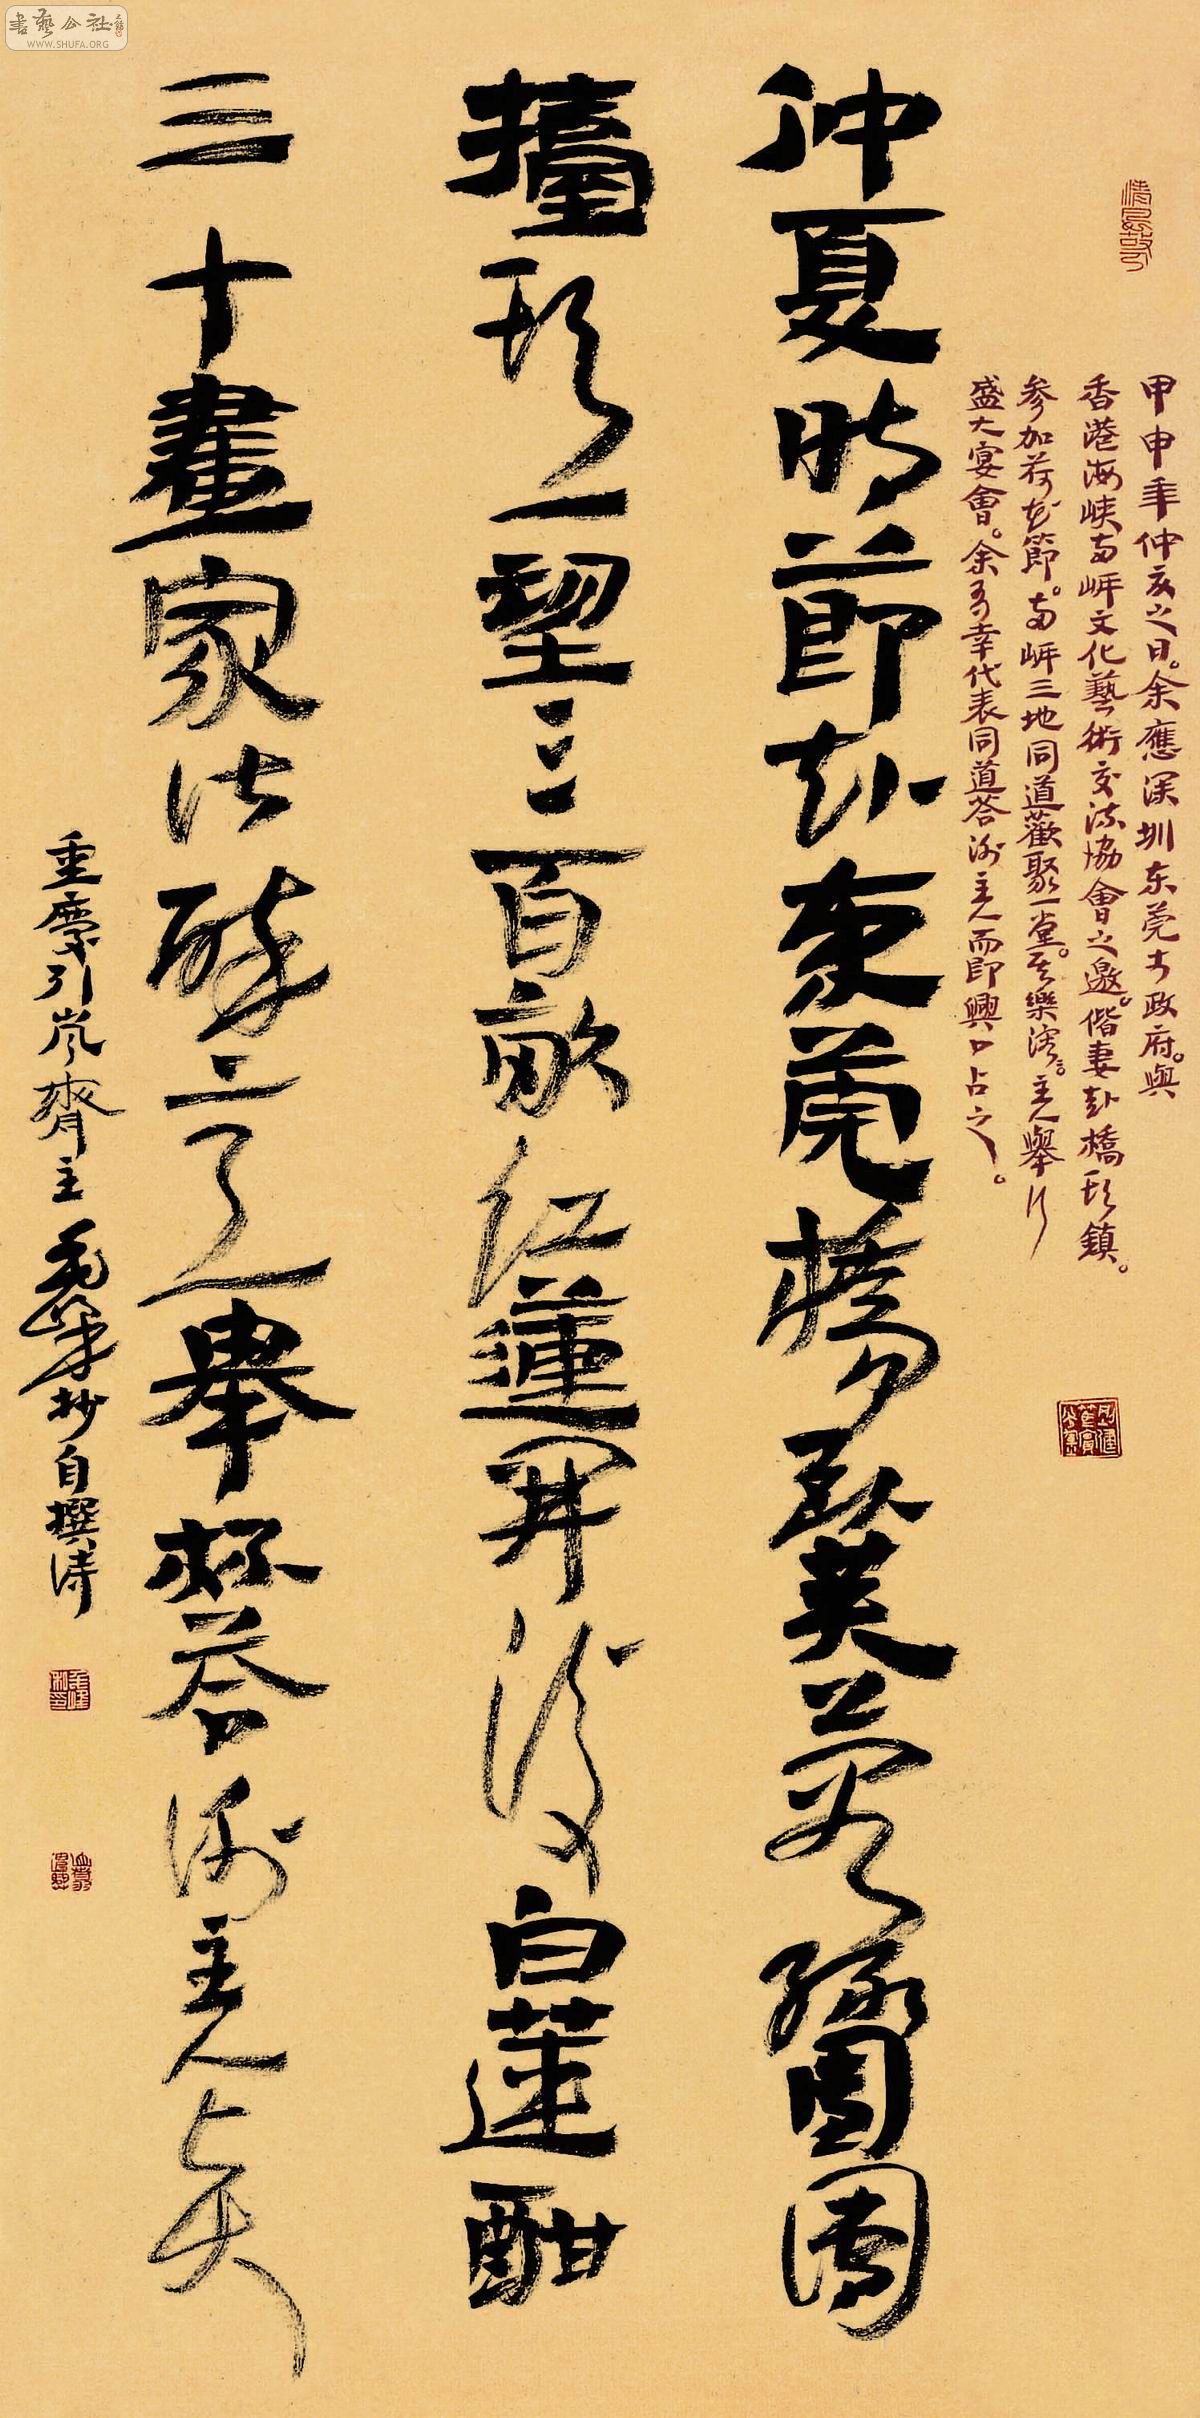 書藝公社
WWW.SHUFA.ORG
甲申年仲夏之日。余應深圳东莞市政府。與
香港海峽兩岸文化藝術交流協會之邀。偕妻赴橋頭鎮。
参加荷花節。兩岸三地同道歡聚一堂。其樂溶溶。主人舉行
盛大宴會。余有幸代表同道答謝主人而即興口占之。
仲夏時節赴東莞橋臥芙蓉綠團團
擡頭一望三百畝紅蓮開後白蓮酣
三十畫家皆醉了舉杯答謝主人
重慶引嵐齊主毛峰抄自撰詩